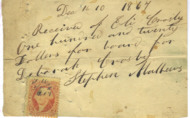 Dec 10 1867
Receive of Eli Crosby
One hundred an twenty
Dollars for board for
Deborah Crosby
Stephen Mathews